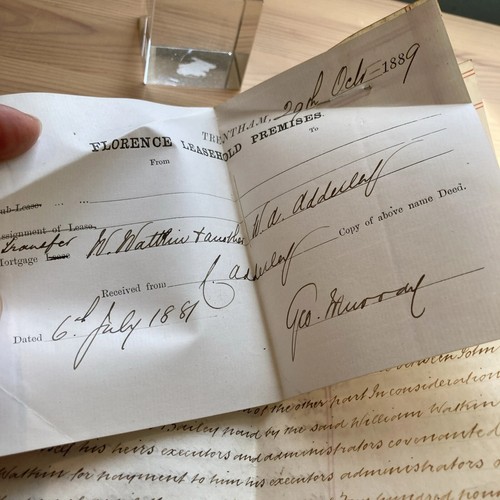 TRENTHAM, 29th Octr 1889
FLORENCE LEASEHOLD PREMISES.
From To
Sub-Lease ... ...
Assignment of Lease
Transfer
Mortgage Lease W. Watkin & another W. A. Adderley
Received from C. Adderley Copy of above name Deed.
Dated 6th July 1881 Geo. Menzies
between John
of the other part In consideration
Bailey paid by the said William Watkin
his heirs executors and administrators covenanted
Watkin for payment to him his executors administrators
hundred